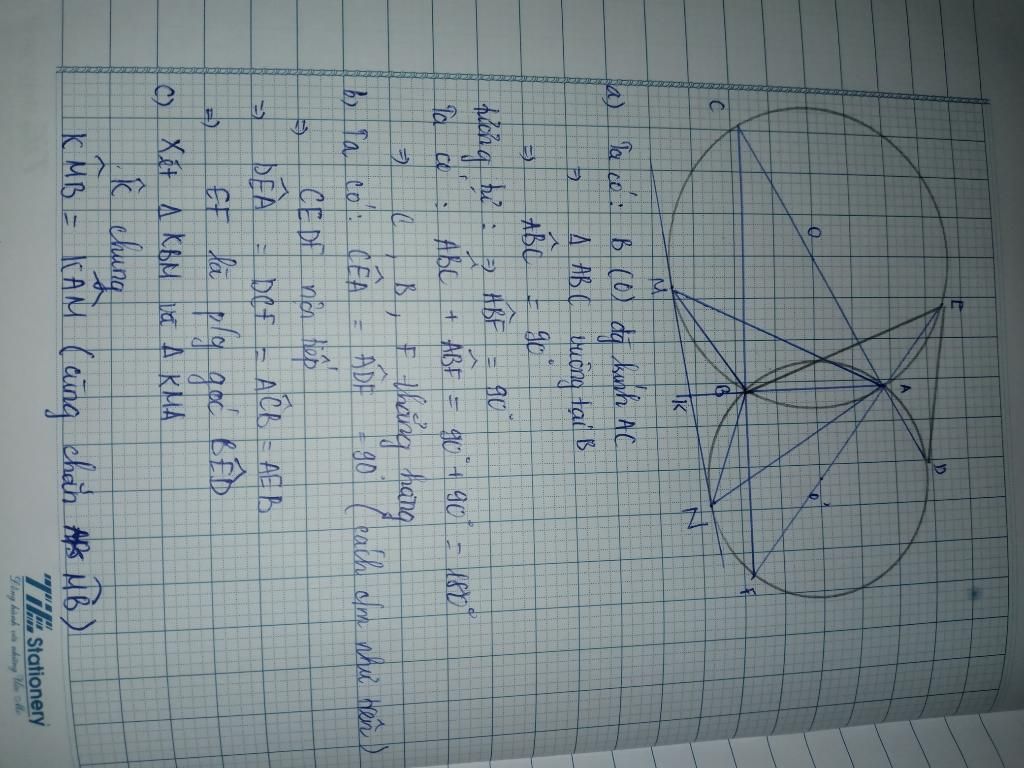 C
O
E
A
D
O'
M
B
K
N
F
a) Ta có: B (O) đg kính AC
=> Δ ABC vuông tại B
=> ABC = 90°
tương tự: => ABF = 90°
Ta có: ABC + ABF = 90° + 90° = 180°
=> C, B, F thẳng hàng
b) Ta có: CEA = ADF = 90° (cách cm như trên)
=> CEDF nội tiếp
=> DEA = DCF = ACB = AEB
=> EF là p/g góc BED
c) Xét Δ KBM và Δ KMA
K chung
KMB = KAM (cùng chắn MB)
TiTi Stationery